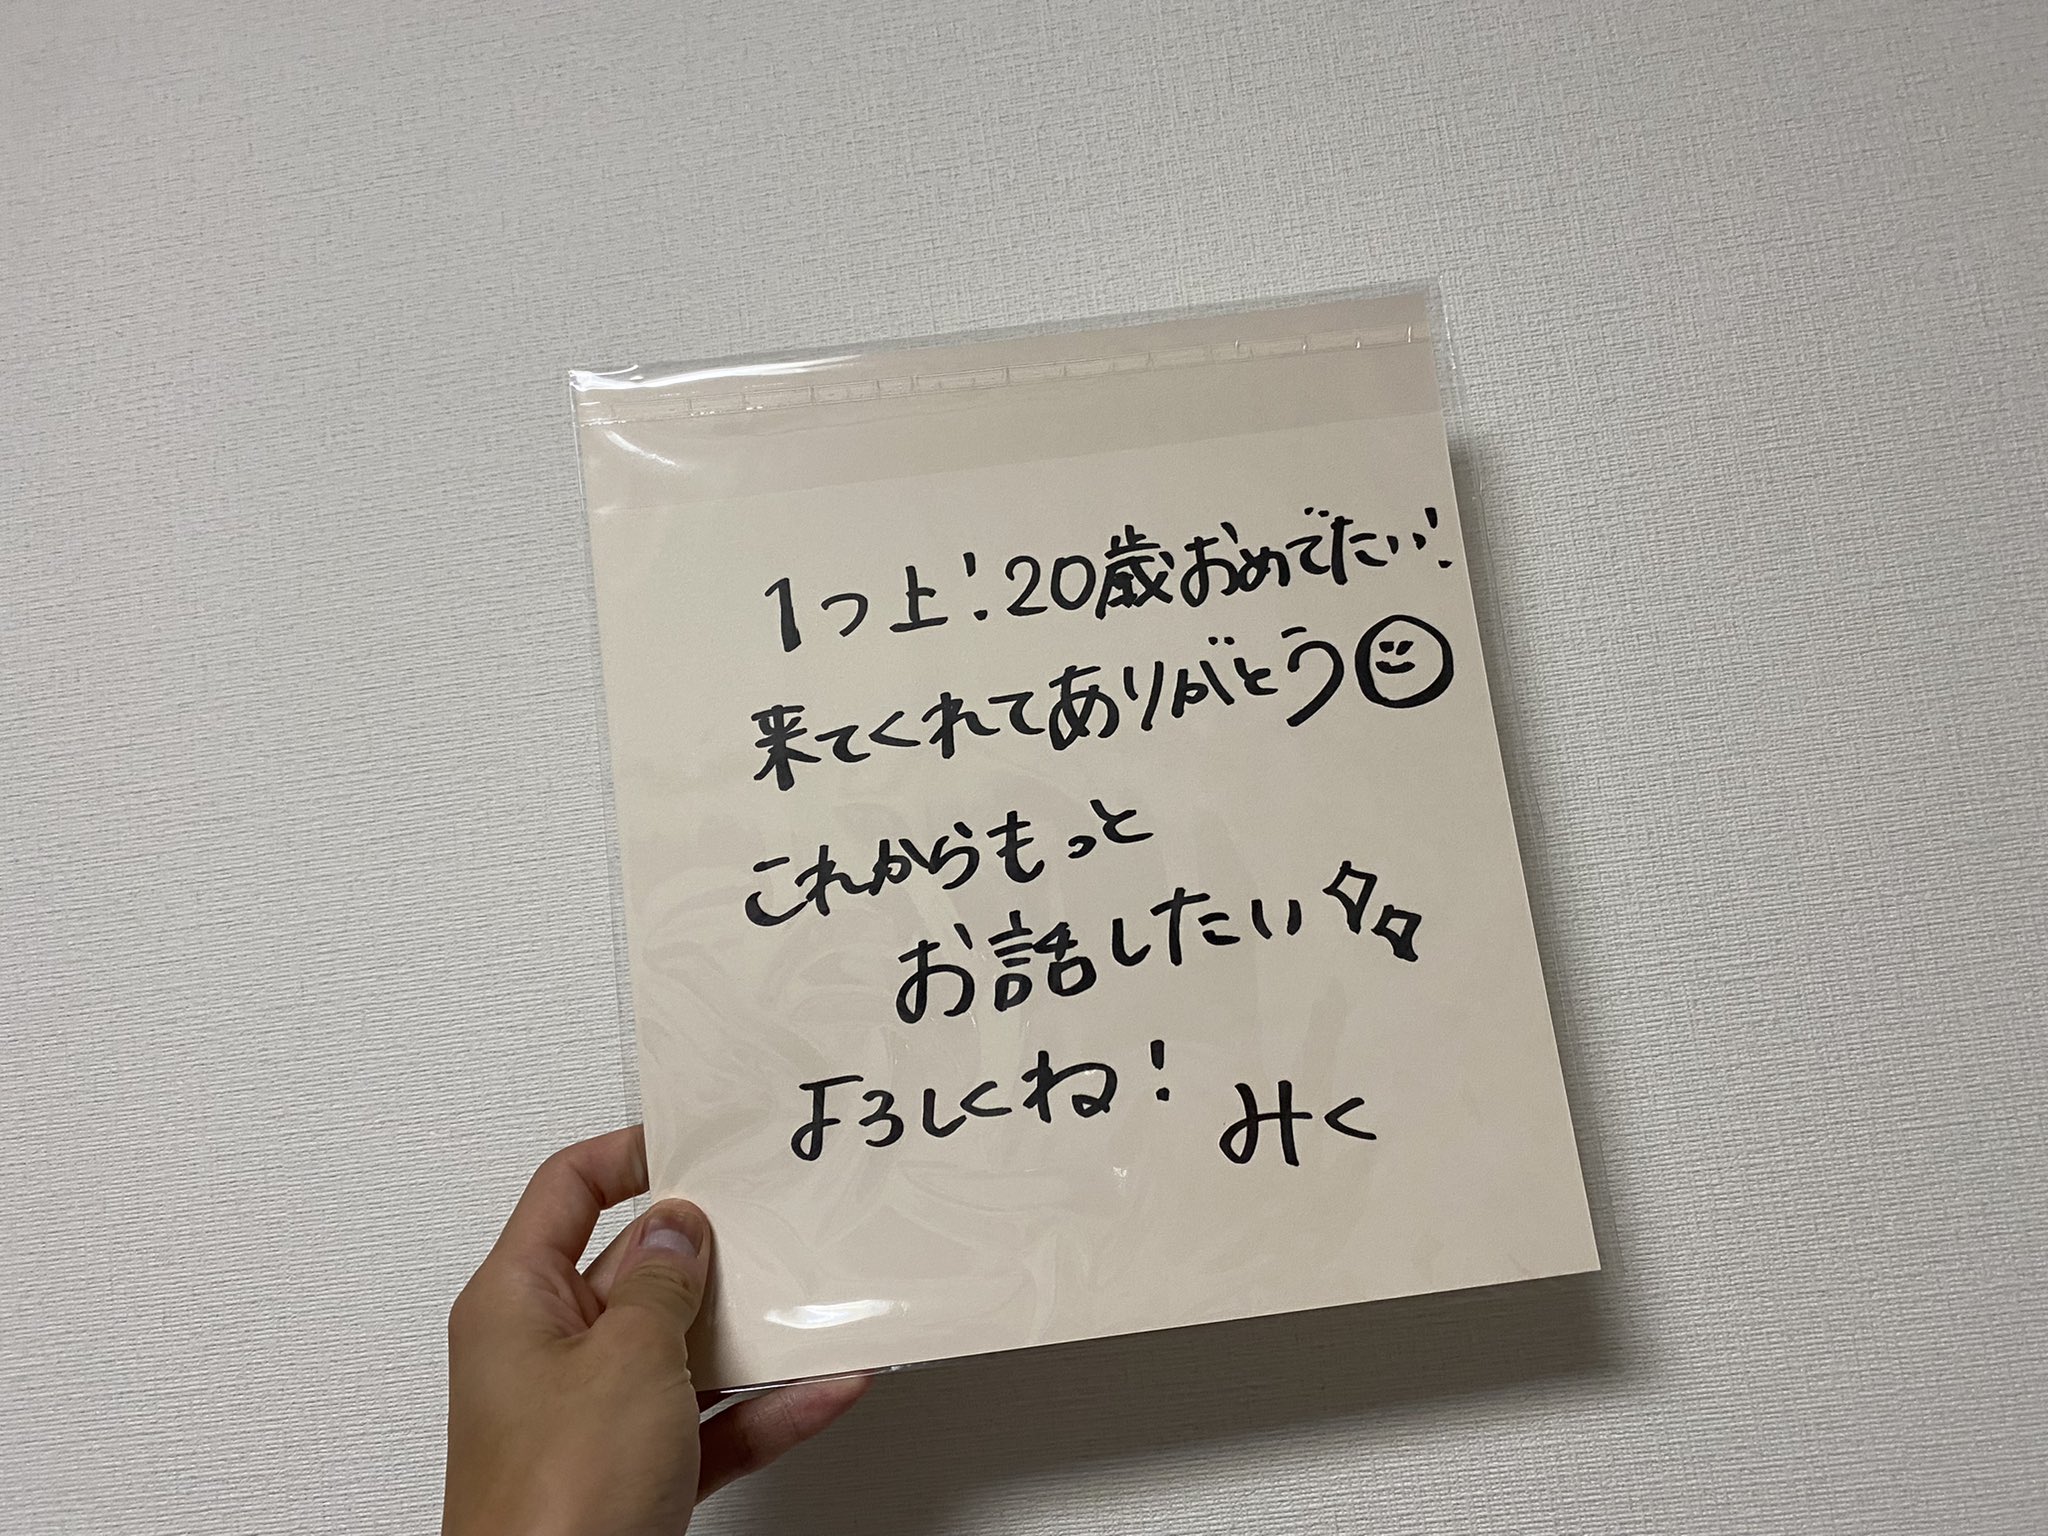 1つ上!20歳おめでたい!
来てくれてありがとう
これからもっと
お話したい
よろしくね!
みく